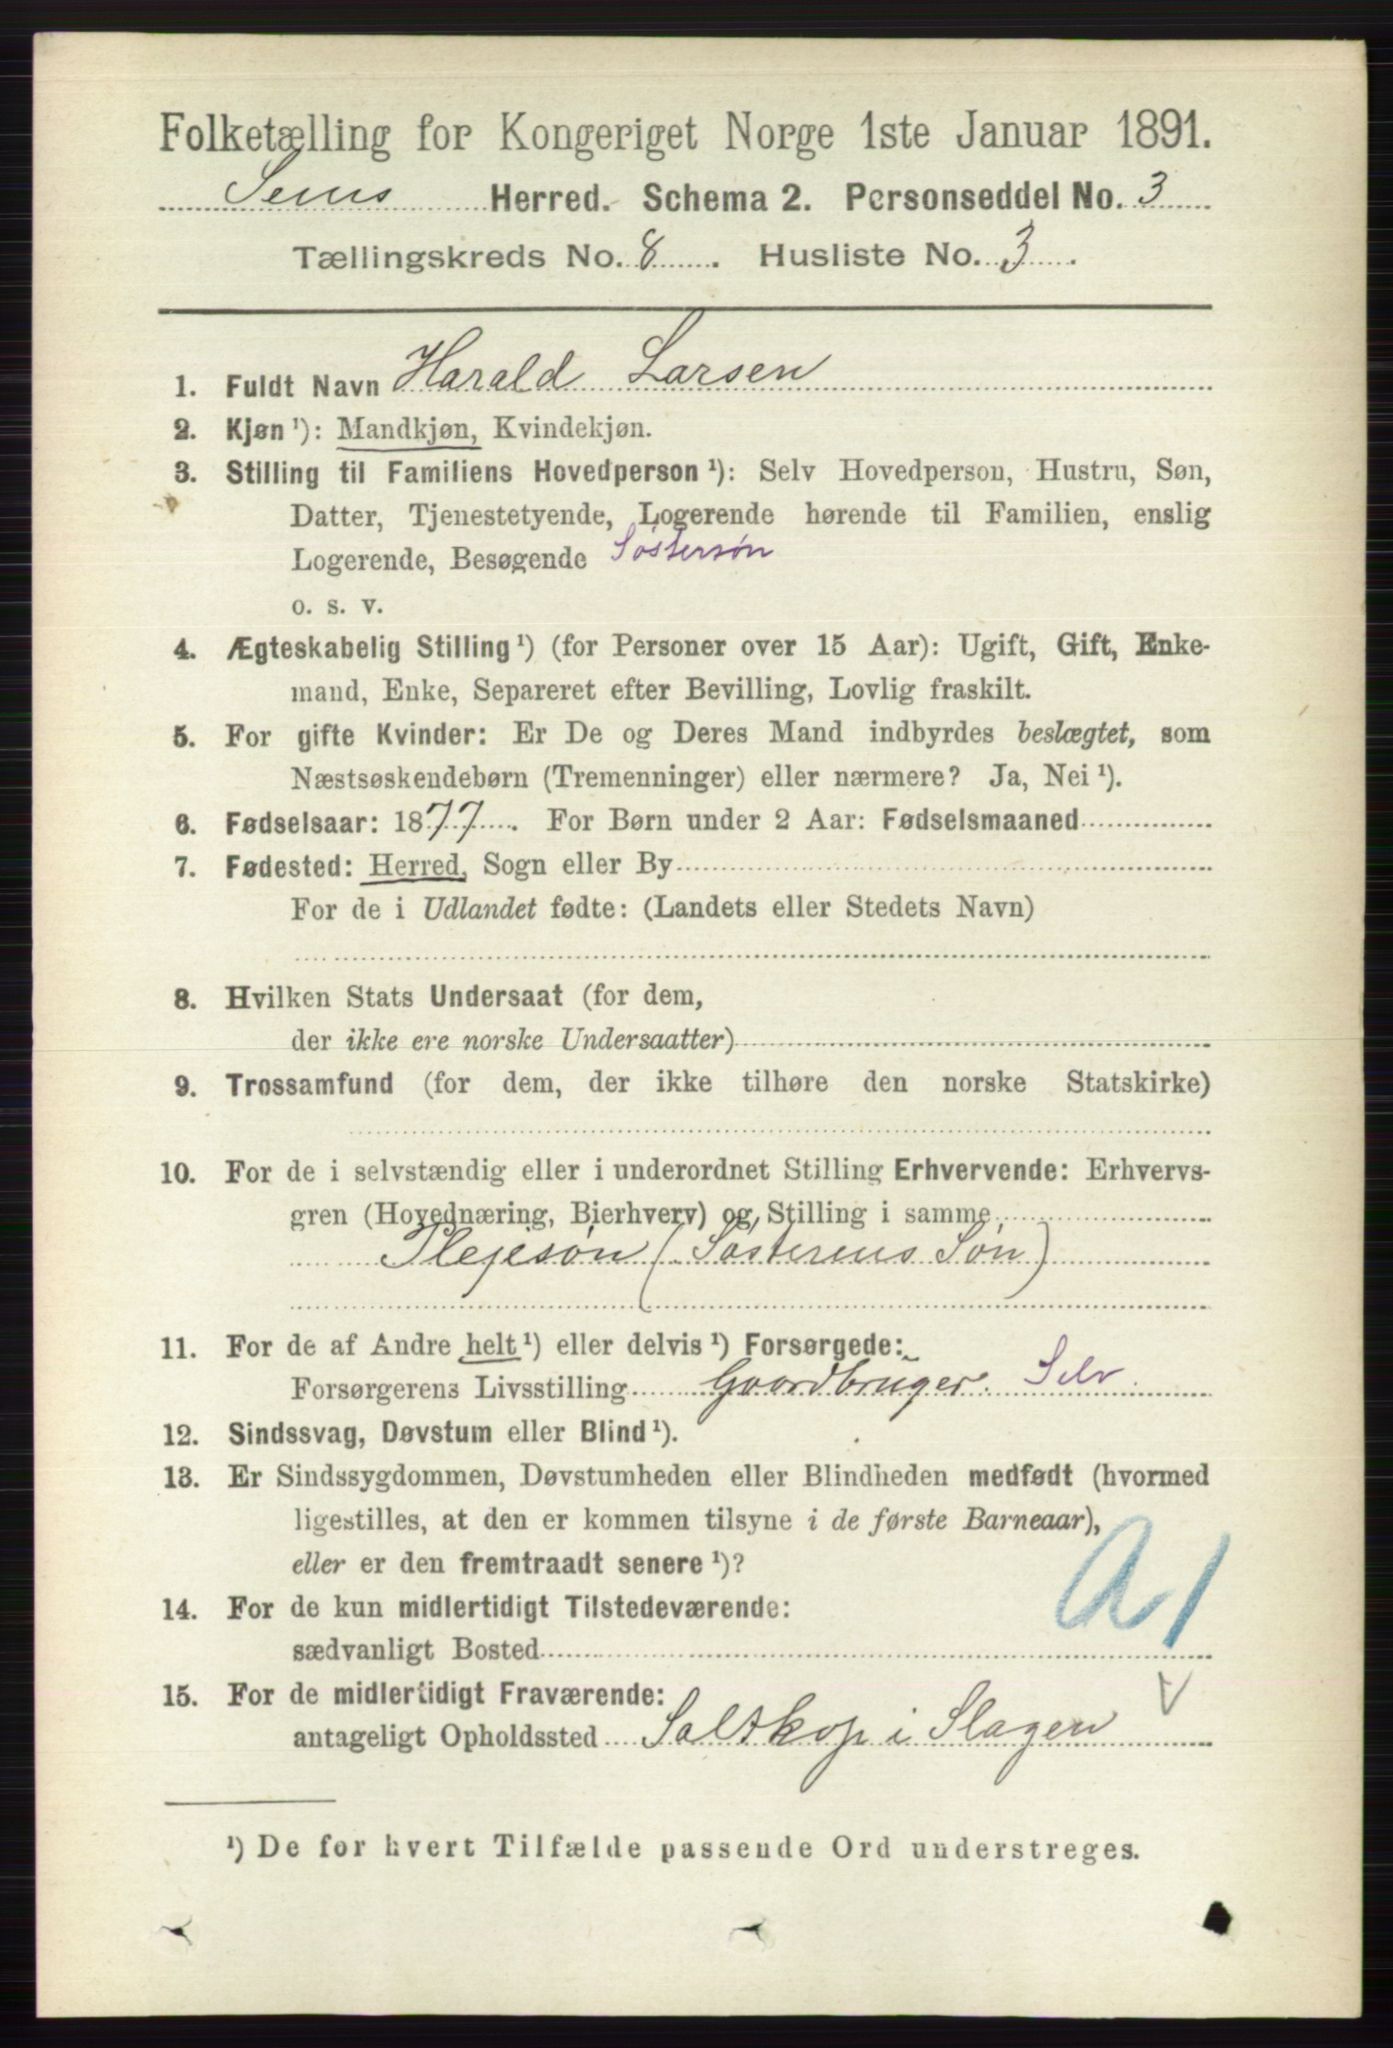 Folketælling for Kongeriget Norge 1ste Januar 1891.
Sems Herred. Schema 2. Personseddel No. 3
Tællingskreds No. 8. Husliste No. 3.
1. Fuldt Navn Harald Larsen
2. Kjøn ¹): Mandkjøn, Kvindekjøn.
3. Stilling til Familiens Hovedperson ¹): Selv Hovedperson, Hustru, Søn,
Datter, Tjenestetyende, Logerende hørende til Familien, enslig
Logerende, Besøgende Søstersøn
o. s. v.
4. Ægteskabelig Stilling ¹) (for Personer over 15 Aar): Ugift, Gift, Enke-
mand, Enke, Separeret efter Bevilling, Lovlig fraskilt.
5. For gifte Kvinder: Er De og Deres Mand indbyrdes beslægtet, som
Næstsøskendebørn (Tremenninger) eller nærmere? Ja, Nei ¹).
6. Fødselsaar: 1877. For Børn under 2 Aar: Fødselsmaaned
7. Fødested: Herred, Sogn eller By
For de i Udlandet fødte: (Landets eller Stedets Navn)
8. Hvilken Stats Undersaat (for dem,
der ikke ere norske Undersaatter)
9. Trossamfund (for dem, der ikke tilhøre den norske Statskirke)
10. For de i selvstændig eller i underordnet Stilling Erhvervende: Erhvervs-
gren (Hovednæring, Bierhverv) og Stilling i samme
Plejesøn (Søsterens Søn)
11. For de af Andre helt ¹) eller delvis ¹) Forsørgede:
Forsørgerens Livsstilling Gaardbruger. Selv.
12. Sindssvag, Døvstum eller Blind ¹).
13. Er Sindssygdommen, Døvstumheden eller Blindheden medfødt (hvormed
ligestilles, at den er kommen tilsyne i de første Barneaar),
eller er den fremtraadt senere ¹)?
14. For de kun midlertidigt Tilstedeværende:
sædvanligt Bosted
15. For de midlertidigt Fraværende:
antageligt Opholdssted Saltkop i Slagen
¹) De for hvert Tilfælde passende Ord understreges.